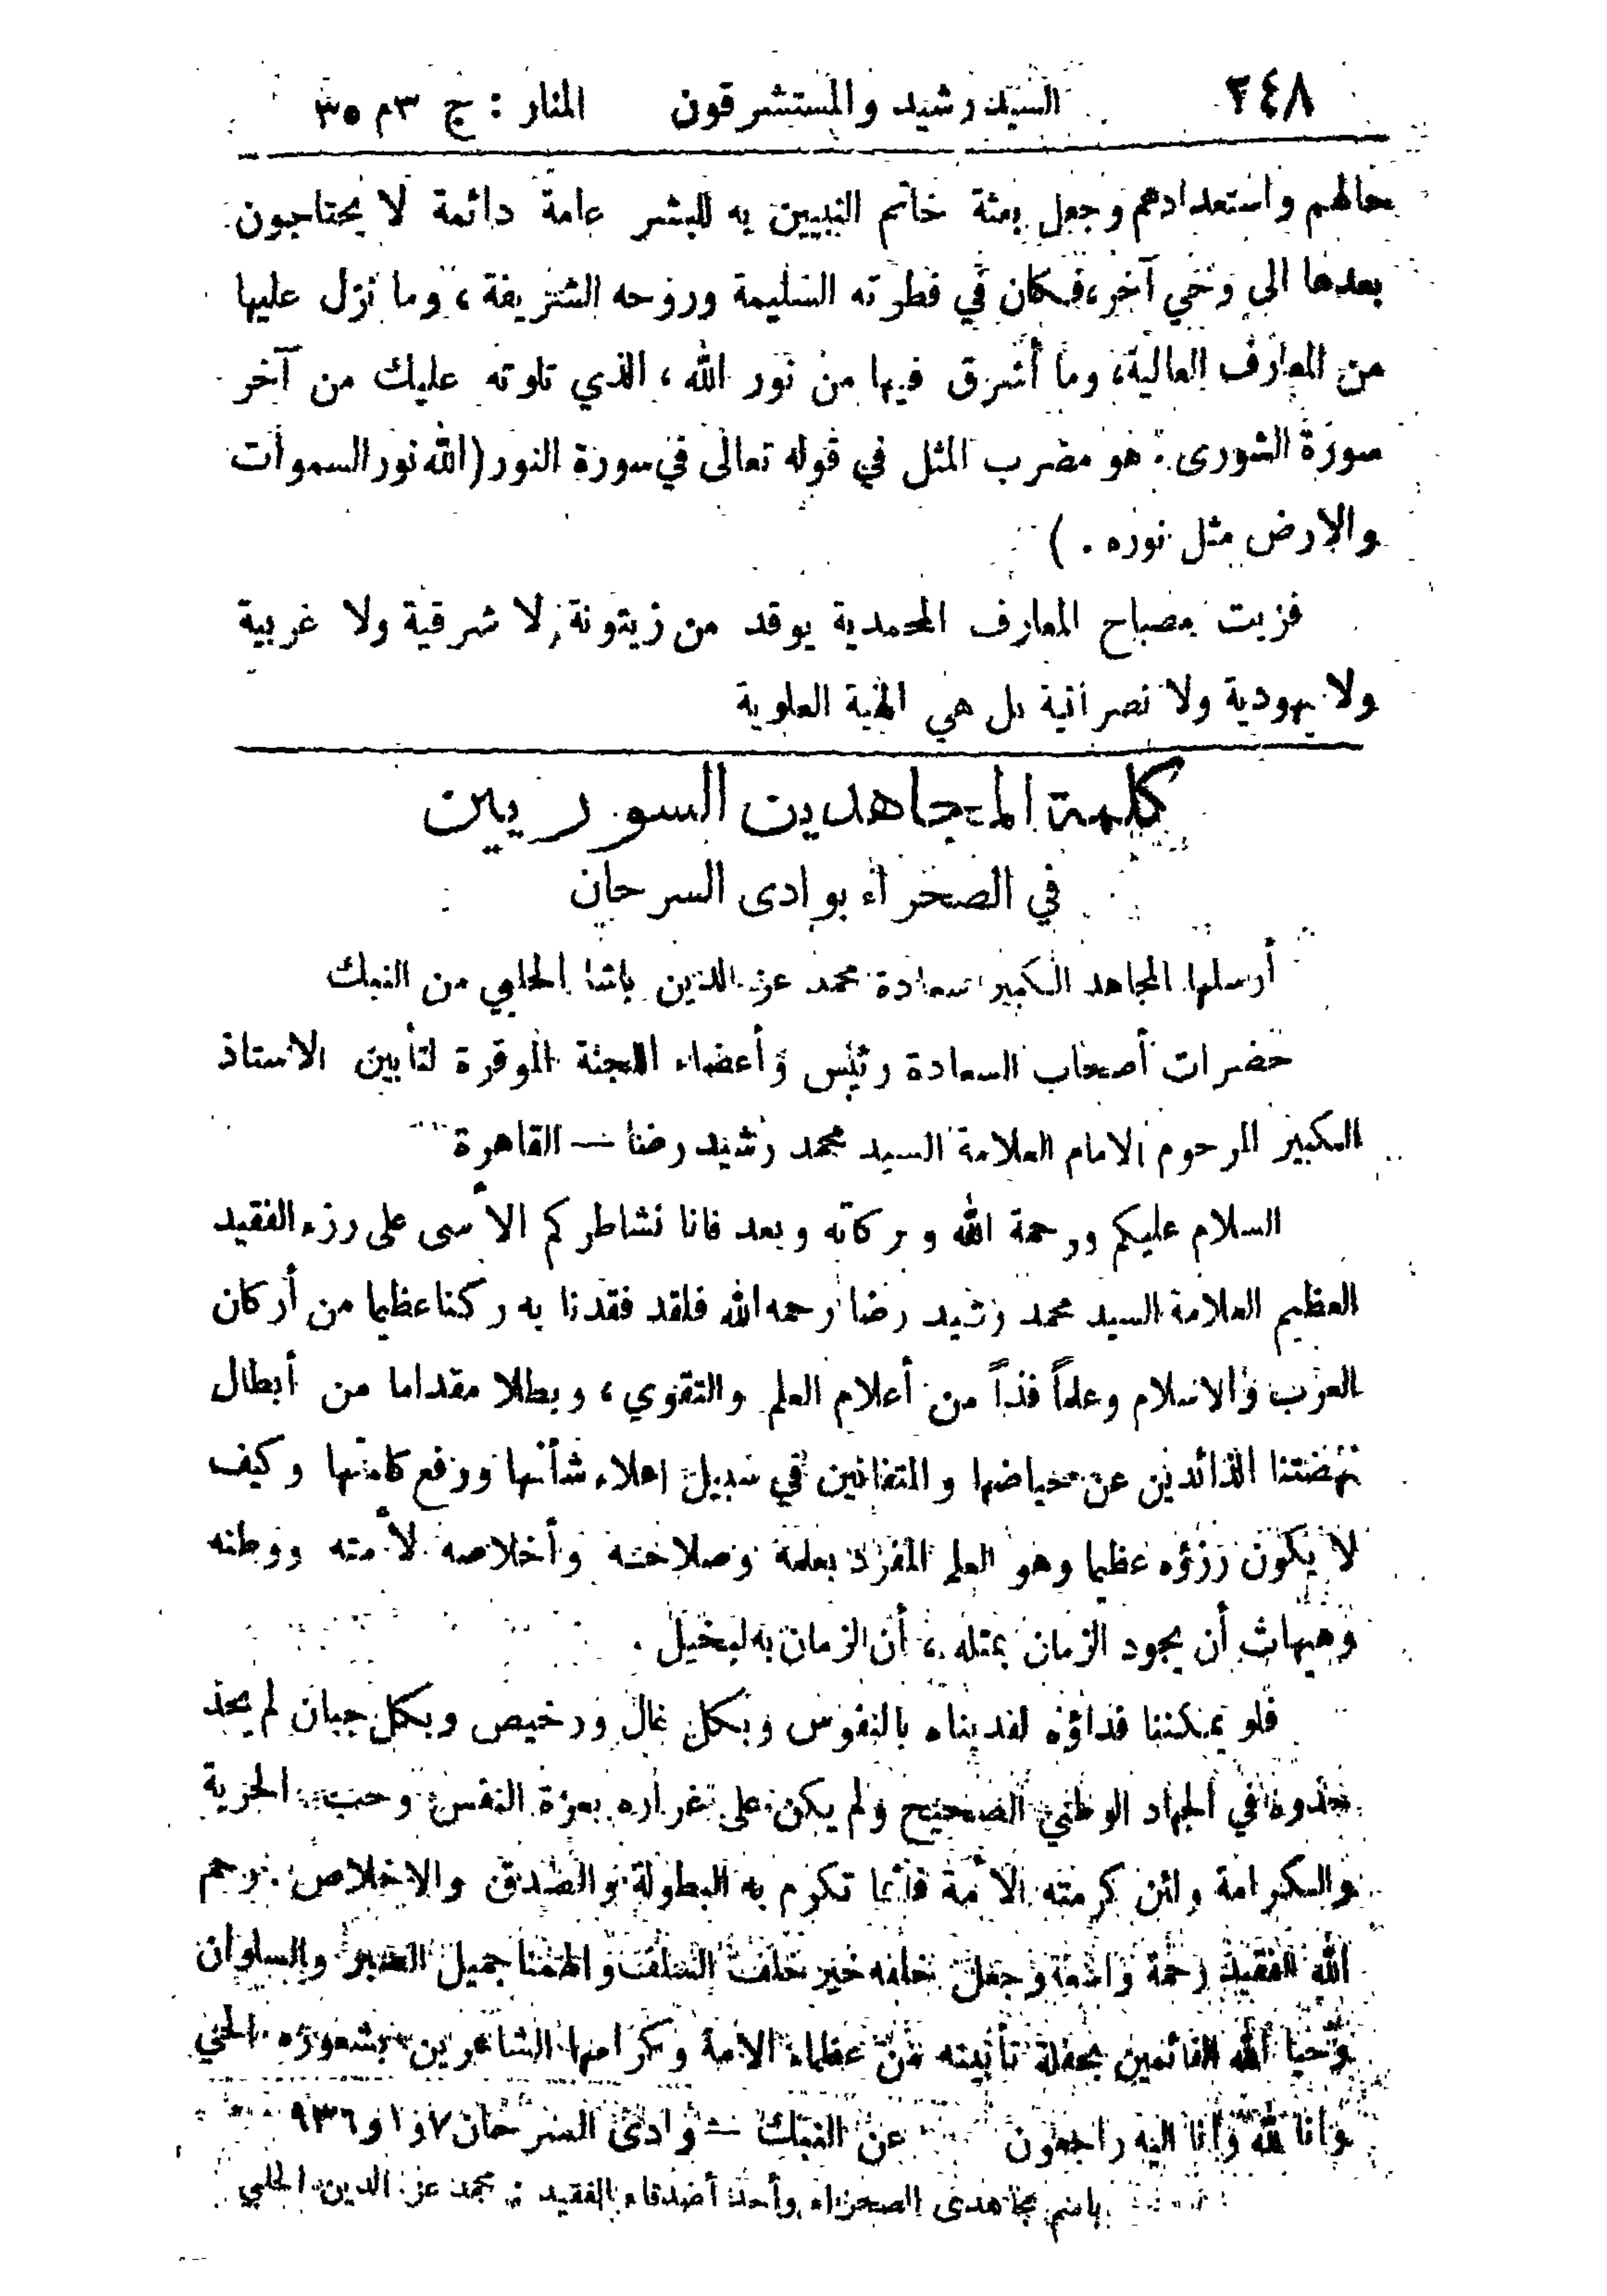 ٢٤٨ السيد رشيد والمستشرقون المنار : ج ٣ م ٣٥
حالهم واستعدادهم وجعل بعثة خاتم النبيين به للبشر عامة دائمة لا يحتاجون
بعدها الى وحي آخر، فكان في فطرته السليمة وروحه الشريفة ، وما نزل عليها
من المعارف العالية، وما أشرق فيها من نور الله ، الذي تلوته عليك من آخر
سورة الشورى : هو مضرب المثل في قوله تعالى في سورة النور (الله نور السموات
والارض مثل نوره . )
فزيت مصباح المعارف المحمدية يوقد من زيتونة لا شرقية ولا غربية
ولا يهودية ولا نصرانية بل هي الهية العلوية
كلمة المجاهدين السوريين
في الصحراء بوادى السرحان
أرسلها المجاهد الكبير سعادة محمد عز الدين باشا الحلبي من النبك
حضرات أصحاب السعادة رئيس وأعضاء اللجنة الموقرة لتأبين الاستاذ
الكبير المرحوم الامام العلامة السيد محمد رشيد رضا — القاهرة
السلام عليكم ورحمة الله وبركاته وبعد فانا نشاطركم الأسى على رزء الفقيد
العظيم العلامة السيد محمد رشيد رضا رحمه الله فلقد فقدنا به ركنا عظيما من أركان
العرب والاسلام وعلماً فذاً من أعلام العلم والتقوي ، وبطلا مقداما من أبطال
نهضتنا الذائدين عن حياضها والمتفانين في سبيل اعلاء شأنها ورفع كلمتها وكيف
لا يكون رزؤه عظيما وهو العلم المفرد بعلمه وصلاحه وأخلاصه لأمته ووطنه
وهيهات أن يجود الزمان بمثله ، أن الزمان به لبخيل .
فلو تمكننا فداؤه لفديناه بالنفوس وبكل غال ورخيص وبكل جبان لم يحذ
حذوه في الجهاد الوطني الصحيح ولم يكن على غراره بعزة النفس وحب الحرية
والكرامة ولئن كرمته الأمة فأنما تكرم به البطولة والصدق والاخلاص . رحم
الله الفقيد رحمة واسعة وجعل خلفه خير خلف السلف والهمنا جميل الصبر والسلوان
وحيا الله القائمين بحفلة تأبينه من عظماء الامة وكرامها الشاعرين بشعوره الحي
وانا لله وانا اليه راجعون عن النبك — وادى السرحان ٧ و ١ و ٩٣٦
باسم مجاهدى الصحراء وأحد أصدقاء الفقيد : محمد عز الدين الحلبي